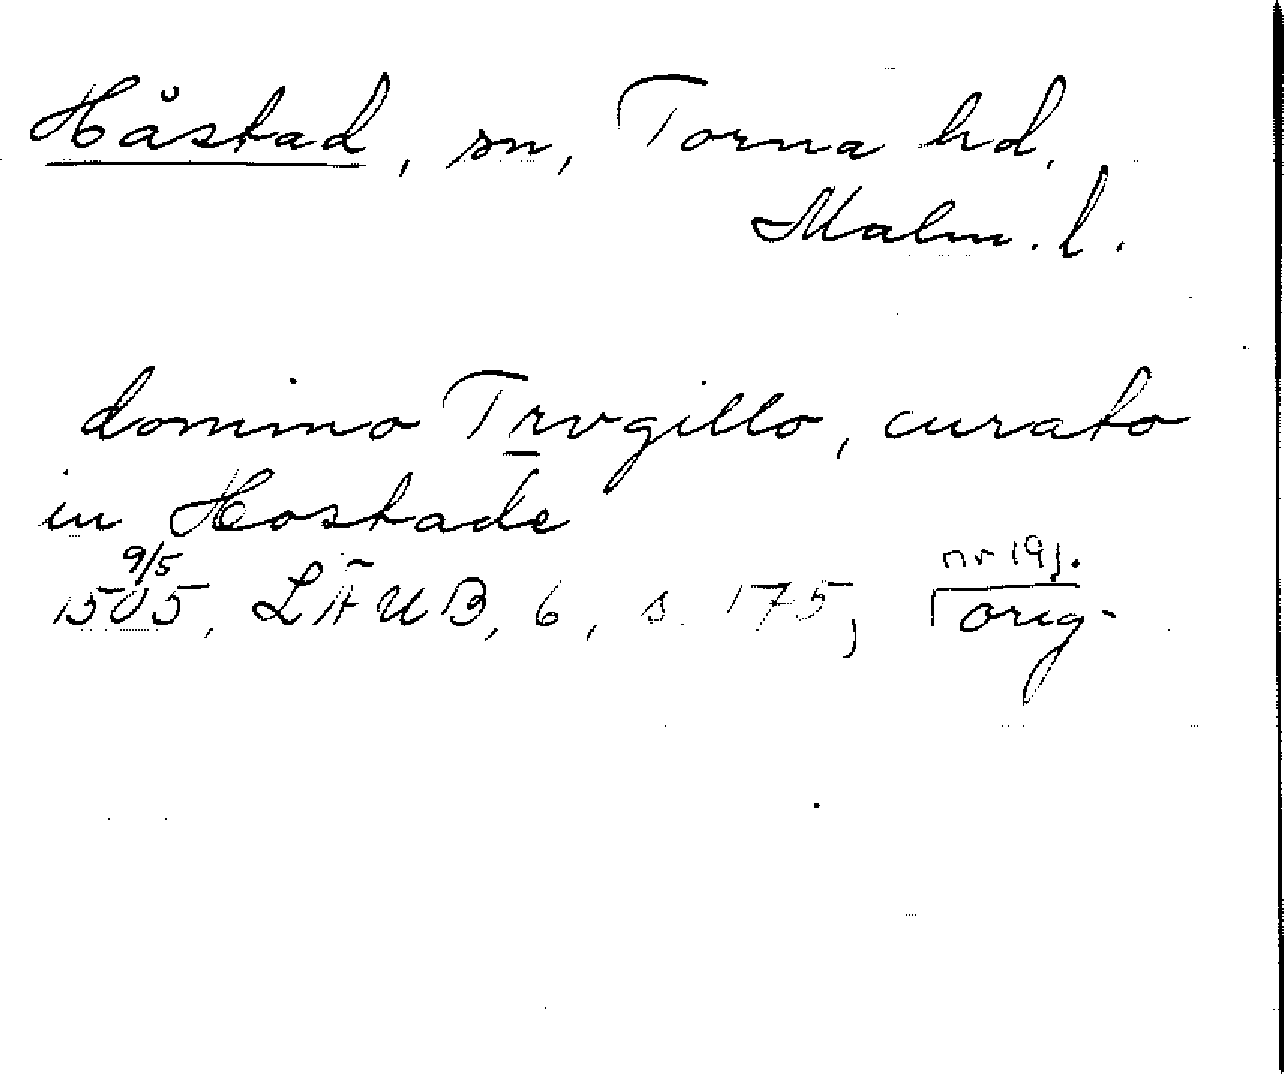 Håstad, sn, Torna hd.
Malm. l.
domino Trvgillo, curato
in Hostade
9/5
1505, LÄUB, 6, s. 175, orig.
nr 191.